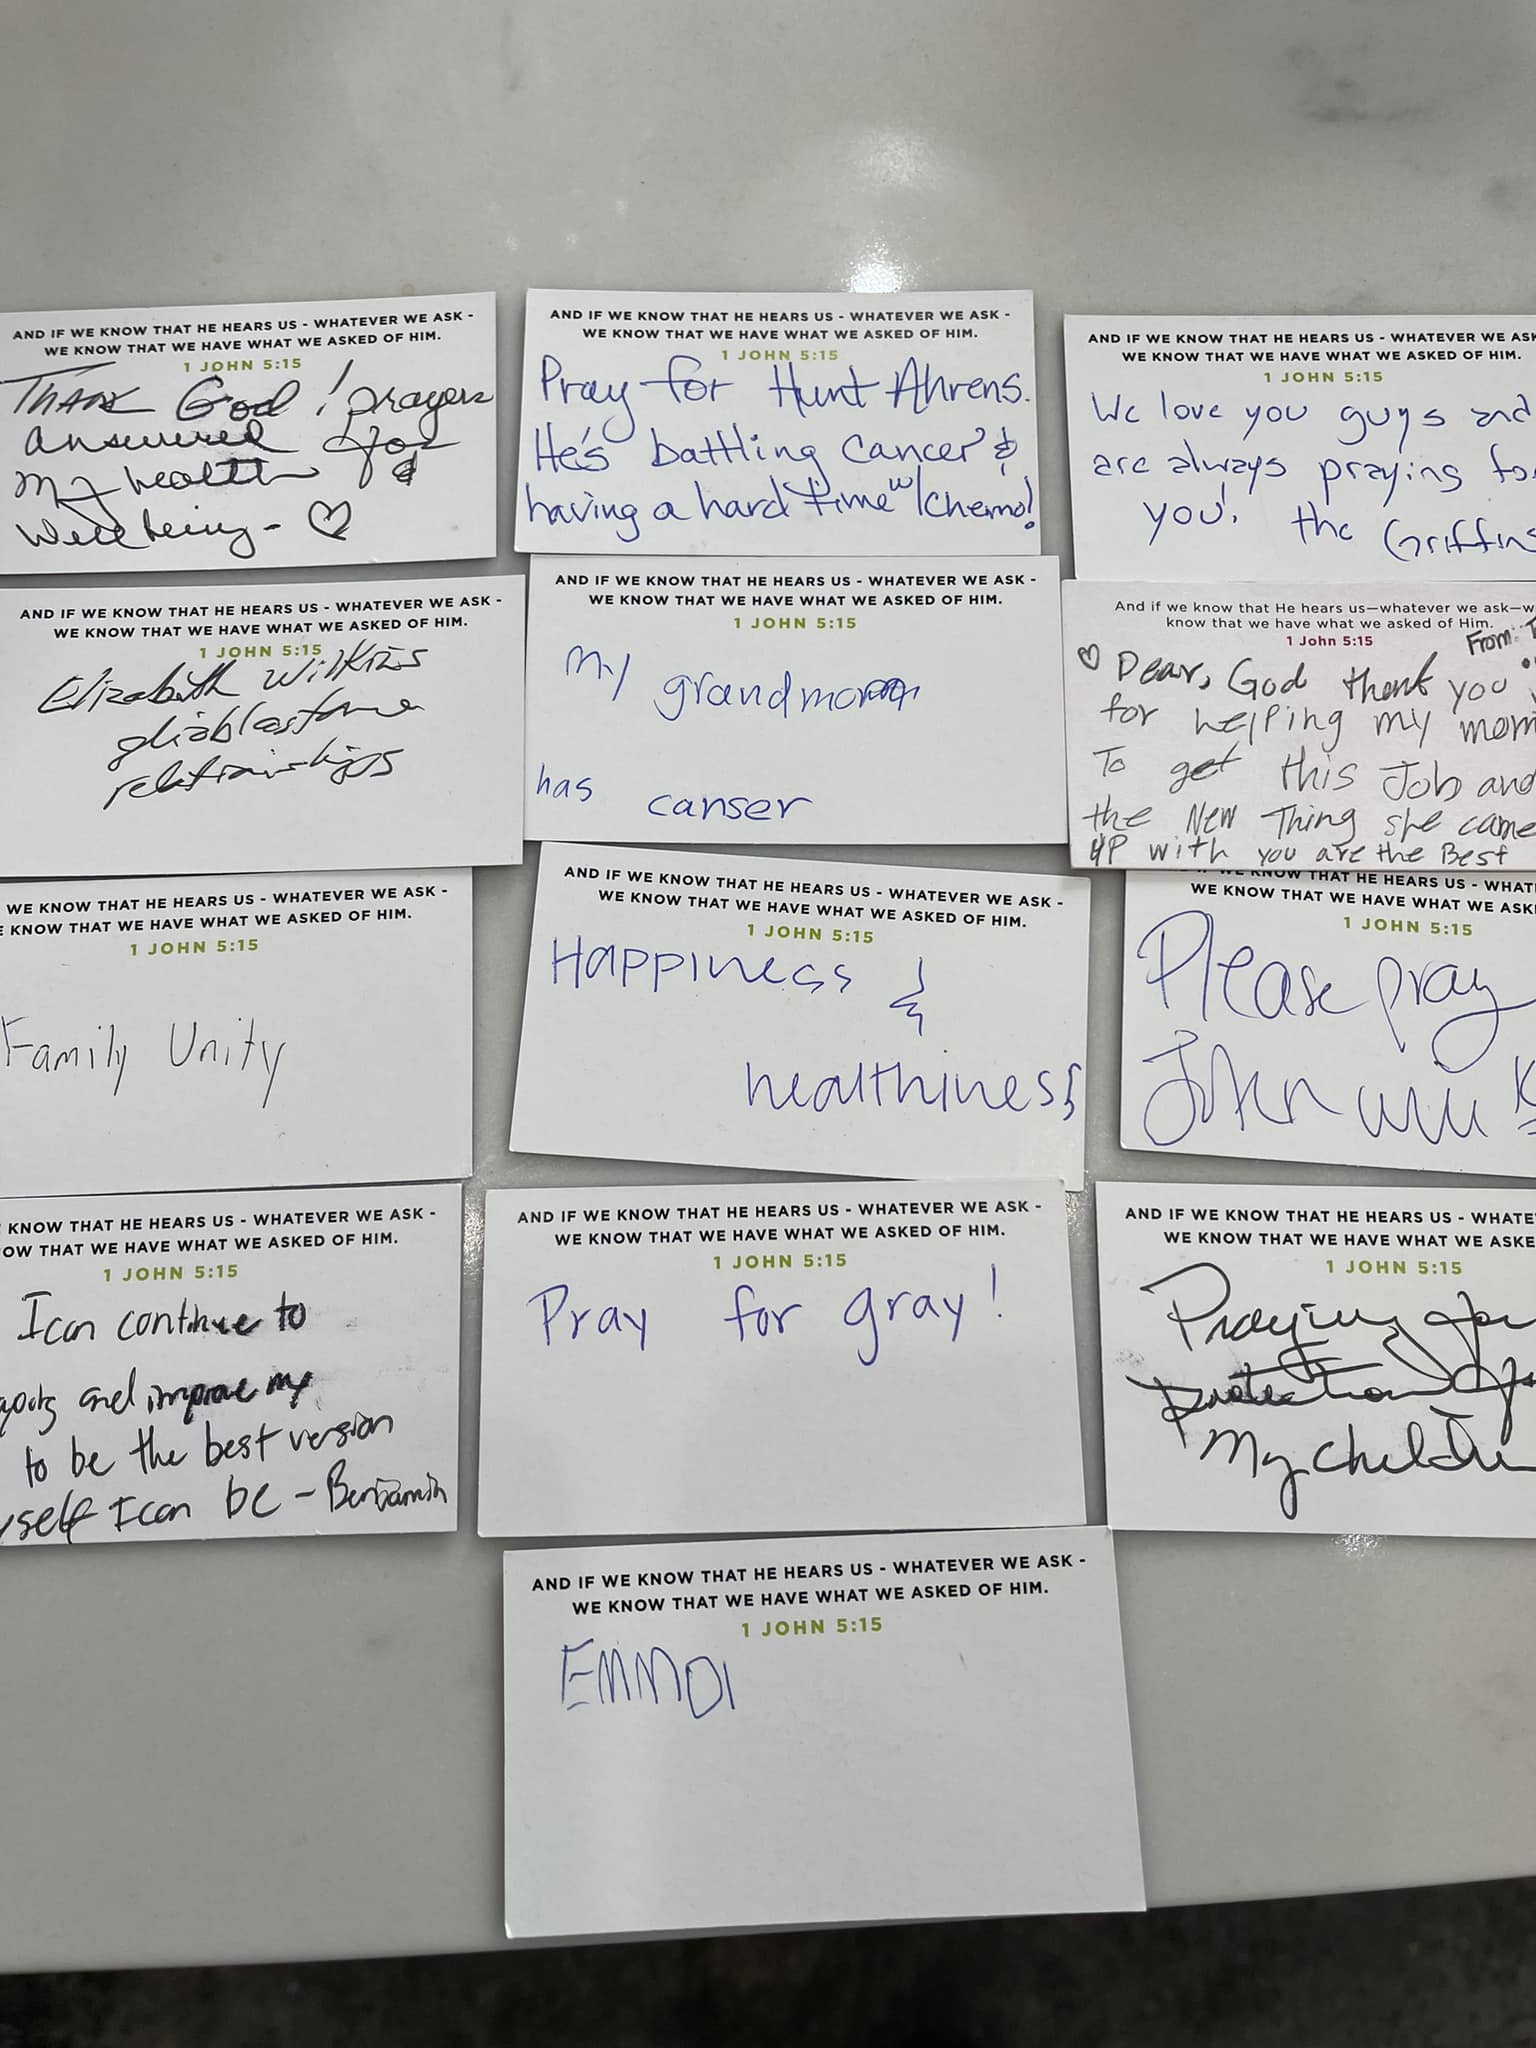 AND IF WE KNOW THAT HE HEARS US - WHATEVER WE ASK -
WE KNOW THAT WE HAVE WHAT WE ASKED OF HIM.
1 JOHN 5:15
THANK God! prayers
answered for
my health &
well being - ♡
AND IF WE KNOW THAT HE HEARS US - WHATEVER WE ASK -
WE KNOW THAT WE HAVE WHAT WE ASKED OF HIM.
1 JOHN 5:15
Pray for Hunt Ahrens.
He's battling cancer &
having a hard time w/chemo!
AND IF WE KNOW THAT HE HEARS US - WHATEVER WE ASK
WE KNOW THAT WE HAVE WHAT WE ASKED OF HIM.
1 JOHN 5:15
We love you guys and
are always praying for
you! the Griffins
AND IF WE KNOW THAT HE HEARS US - WHATEVER WE ASK -
WE KNOW THAT WE HAVE WHAT WE ASKED OF HIM.
1 JOHN 5:15
Elizabeth Wilkins
glioblastoma
relationships
AND IF WE KNOW THAT HE HEARS US - WHATEVER WE ASK -
WE KNOW THAT WE HAVE WHAT WE ASKED OF HIM.
1 JOHN 5:15
my grandmom
has canser
And if we know that He hears us—whatever we ask—w
know that we have what we asked of Him.
1 John 5:15
From:
♡ Dear, God thank you
for helping my mom
To get this Job and
the New Thing she came
UP with you are the Best
WE KNOW THAT HE HEARS US - WHATEVER WE ASK -
KNOW THAT WE HAVE WHAT WE ASKED OF HIM.
1 JOHN 5:15
Family Unity
AND IF WE KNOW THAT HE HEARS US - WHATEVER WE ASK -
WE KNOW THAT WE HAVE WHAT WE ASKED OF HIM.
1 JOHN 5:15
Happiness &
healthiness
WE KNOW THAT HE HEARS US - WHAT
WE KNOW THAT WE HAVE WHAT WE ASK
1 JOHN 5:15
Please pray
John
KNOW THAT HE HEARS US - WHATEVER WE ASK -
OW THAT WE HAVE WHAT WE ASKED OF HIM.
1 JOHN 5:15
I can continue to
and improve my
to be the best version
yself I can be - Benjamin
AND IF WE KNOW THAT HE HEARS US - WHATEVER WE ASK -
WE KNOW THAT WE HAVE WHAT WE ASKED OF HIM.
1 JOHN 5:15
Pray for gray!
AND IF WE KNOW THAT HE HEARS US - WHATE
WE KNOW THAT WE HAVE WHAT WE ASKE
1 JOHN 5:15
Praying for
protection for
My children
AND IF WE KNOW THAT HE HEARS US - WHATEVER WE ASK -
WE KNOW THAT WE HAVE WHAT WE ASKED OF HIM.
1 JOHN 5:15
EMMA